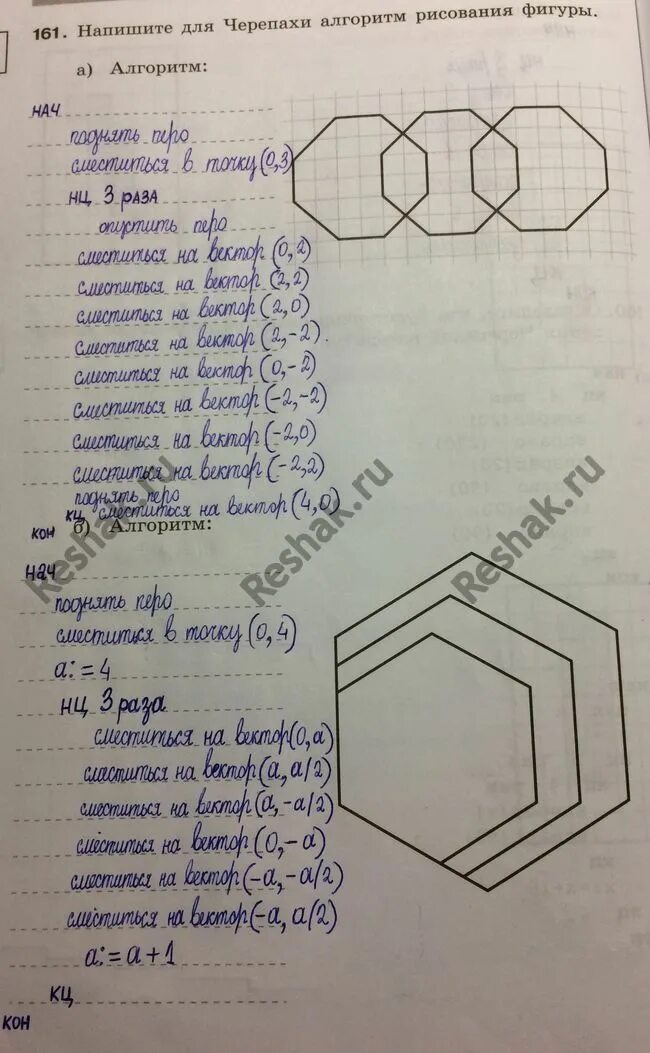 161. Напишите для Черепахи алгоритм рисования фигуры.
а) Алгоритм:
нач
поднять перо
сместиться в точку (0,3)
нц 3 раза
опустить перо
сместиться на вектор (0,2)
сместиться на вектор (2,2)
сместиться на вектор (2,0)
сместиться на вектор (2,-2).
сместиться на вектор (0,-2)
сместиться на вектор (-2,-2)
сместиться на вектор (-2,0)
сместиться на вектор (-2,2)
поднять перо
кц сместиться на вектор (4,0)
кон
б) Алгоритм:
нач
поднять перо
сместиться в точку (0,4)
a:=4
нц 3 раза
сместиться на вектор (0,a)
сместиться на вектор (a, a/2)
сместиться на вектор (a, -a/2)
сместиться на вектор (0, -a)
сместиться на вектор (-a, -a/2)
сместиться на вектор (-a, a/2)
a:= a+1
кц
кон
Reshak.ru
Reshak.ru
Reshak.ru